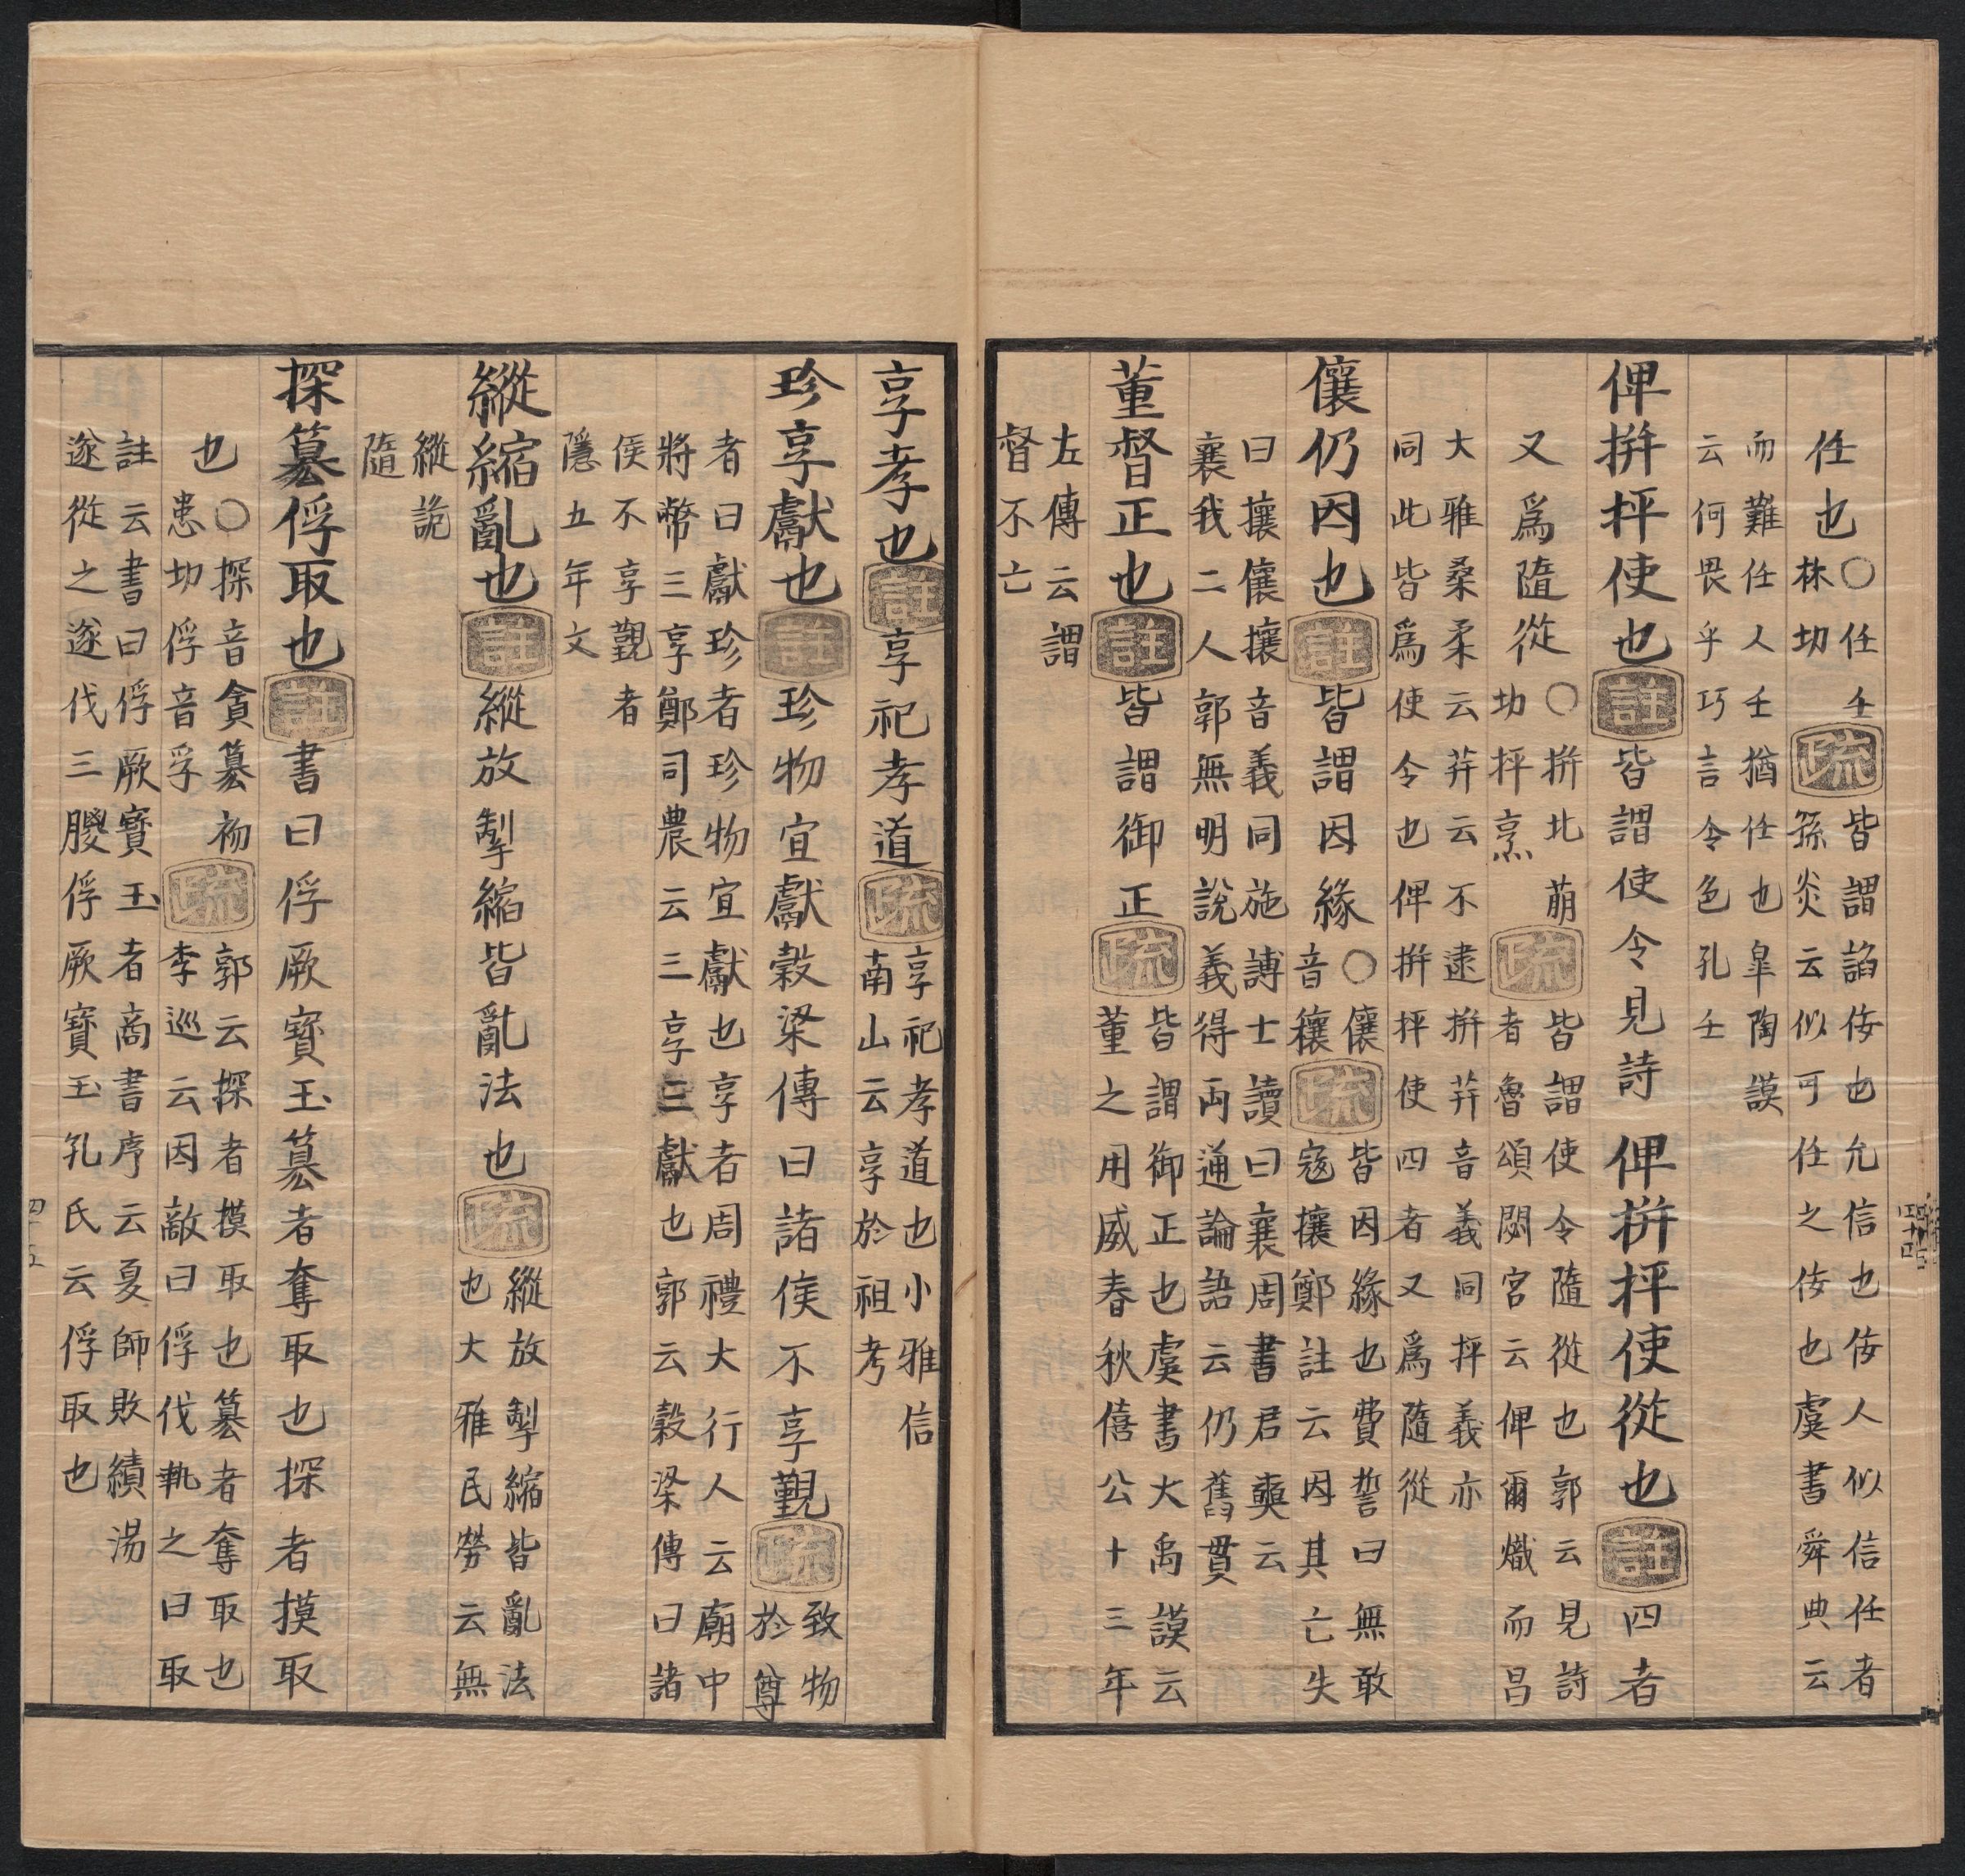 任也○任壬林切疏皆謂諂佞也允信也佞人似信任者
孫炎云似可任之佞也虞書舜典云
而難任人壬猶任也皐陶謨
云何畏乎巧言令色孔壬
俾拼抨使也註皆謂使令見詩 俾拼抨使從也註四者
又爲隨從○拼北萠切抨烹疏皆謂使令隨從也郭云見詩
者魯頌閟宮云俾爾熾而昌
大雅桑柔云荓云不逮拼荓音義同抨義亦
同此皆爲使令也俾拼抨使四者又爲隨從
儴仍因也註皆謂因緣○儴音穰疏皆因緣也費誓曰無敢
寇攘鄭註云因其亡失
曰攘儴攘音義同施博士讀曰襄周書君奭云
襄我二人郭無明說義得兩通論語云仍舊貫
董督正也註皆謂御正疏皆謂御正也虞書大禹謨云
董之用威春秋僖公十三年
左傳云謂
督不亡
享孝也註享祀孝道疏享祀孝道也小雅信
南山云享於祖考
珍享獻也註珍物宜獻穀梁傳曰諸侯不享覲疏致物
於尊
者曰獻珍者珍物宜獻也享者周禮大行人云廟中
將幣三享鄭司農云三享三獻也郭云穀梁傳曰諸
侯不享覲者
隱五年文
縱縮亂也註縱放掣縮皆亂法也疏縱放掣縮皆亂法
也大雅民勞云無
縱詭
隨
探篡俘取也註書曰俘厥寶玉篡者奪取也探者摸取
也○探音貪篡初患切俘音孚疏郭云探者摸取也篡者奪取也
李巡云因敵曰俘伐執之曰取
註云書曰俘厥寶玉者商書序云夏師敗績湯
遂從之遂伐三朡俘厥寶玉孔氏云俘取也
四十五